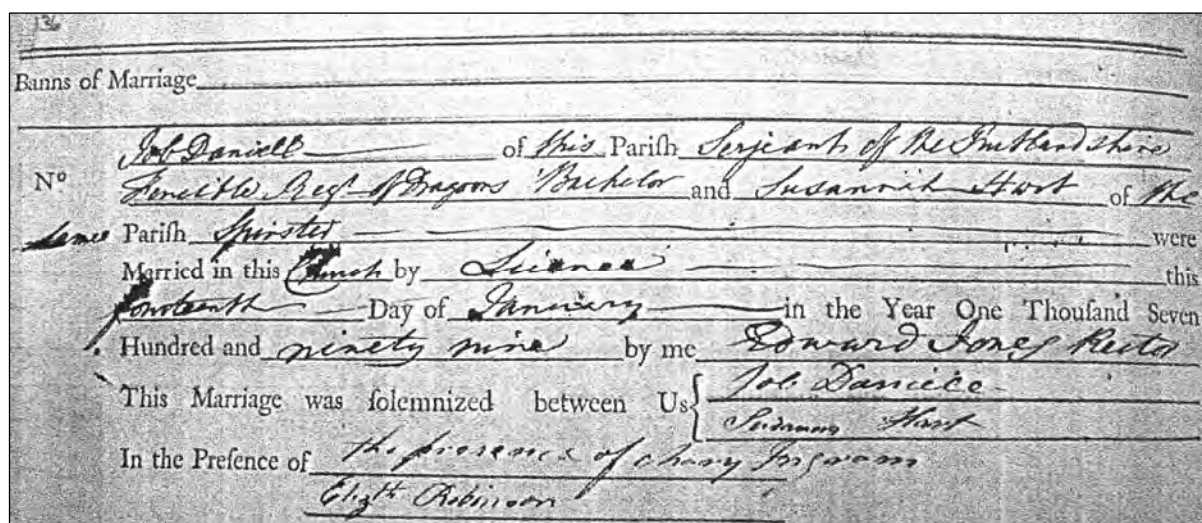 136
Banns of Marriage
Job Daniell of this Parish Serjeant of the
Nº Fencible Regt of Dragoons Bachelor and Susannah Hart of the
same Parish Spinster were
Married in this Church by Licence this
fourteenth Day of January in the Year One Thouſand Seven
Hundred and ninety nine by me Edward Jones Rector
This Marriage was ſolemnized between Us Job Daniell
Hart
In the Preſence of the presence of Ingram
Elizth Robinson